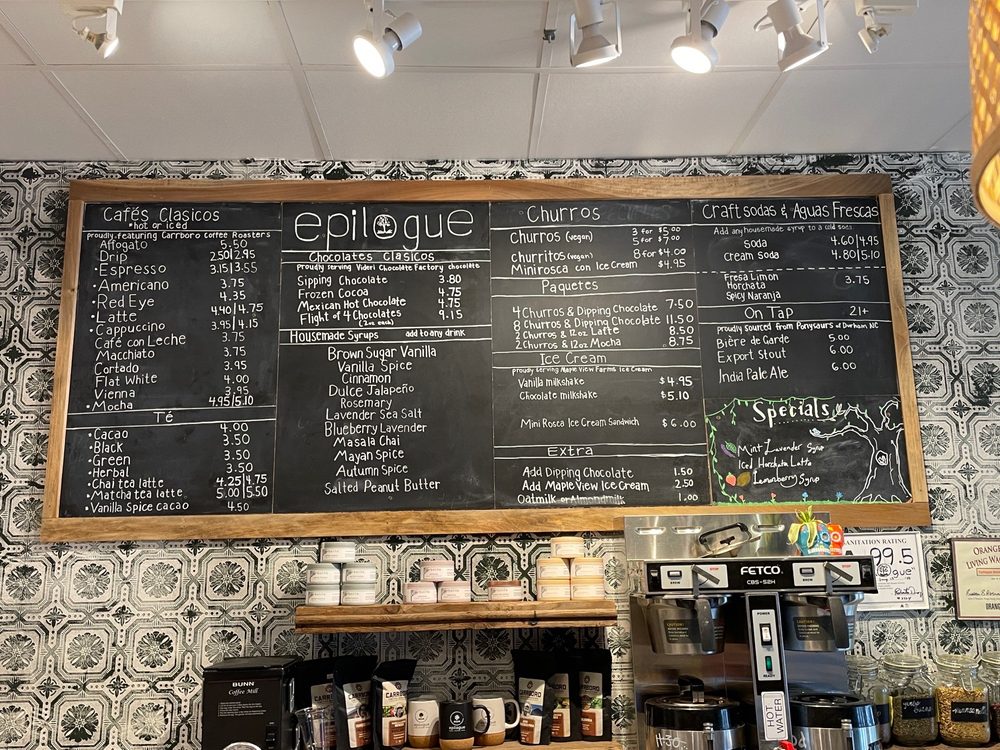 Cafés Clasicos
•hot or iced
proudly featuring Carrboro Coffee Roasters
Affogato 5.50
Drip 2.50|2.95
•Espresso 3.15|3.55
•Americano 3.75
•Red Eye 4.35
•Latte 4.40|4.75
•Cappuccino 3.95|4.15
Café con Leche 3.75
Macchiato 3.75
Cortado 3.95
Flat White 4.00
Vienna 3.95
•Mocha 4.95|5.10
Té
•Cacao 4.00
•Black 3.50
•Green 3.50
•Herbal 3.50
•Chai tea latte 4.25|4.75
•Matcha tea latte 5.00|5.50
•Vanilla Spice cacao 4.50
epilogue
Chocolates Clasicos
Proudly serving Videri Chocolate Factory chocolate
Sipping Chocolate 3.80
Frozen Cocoa 4.75
Mexican Hot Chocolate 4.75
Flight of 4 Chocolates 9.15
(2oz each)
Homemade Syrups add to any drink
Brown Sugar Vanilla
Vanilla Spice
Cinnamon
Dulce Jalapeño
Rosemary
Lavender Sea Salt
Blueberry Lavender
Masala Chai
Mayan Spice
Autumn Spice
Salted Peanut Butter
Churros
Churros (vegan) 3 for $5.00
5 for $7.00
churritos (vegan) 8 for $4.00
Mini rosca con Ice Cream $4.95
Paquetes
4 Churros & Dipping Chocolate 7.50
8 Churros & Dipping Chocolate 11.50
2 Churros & 12oz Latte 8.50
2 Churros & 12oz Mocha 8.75
Ice Cream
proudly serving Maple View Farms Ice Cream
Vanilla milkshake $4.95
Chocolate milkshake $5.10
Mini Rosca Ice Cream Sandwich $6.00
Extra
Add Dipping Chocolate 1.50
Add Maple View Ice Cream 2.50
Oatmilk or Almondmilk 1.00
Craft sodas & Aguas Frescas
Add any housemade syrup to a cold soda
Soda 4.60|4.95
Cream Soda 4.80|5.10
Fresa Limon
Horchata 3.75
Spicy Naranja
On Tap 21+
proudly Sourced from Ponysaurs of Durham NC
Bière de Garde 5.00
Export Stout 6.00
India Pale Ale 6.00
Specials
Mint Lavender Syrup
Iced Horchata Latte
Lemonberry Syrup
FETCO
CBS-52H
BREW
BREW
CAUTION
CAUTION
POWER
READY
HOT WATER
SANITATION RATING
99.5
ORANGE
LIVING WAGE
BUNN
Coffee Mill
CARRBORO
epilogue